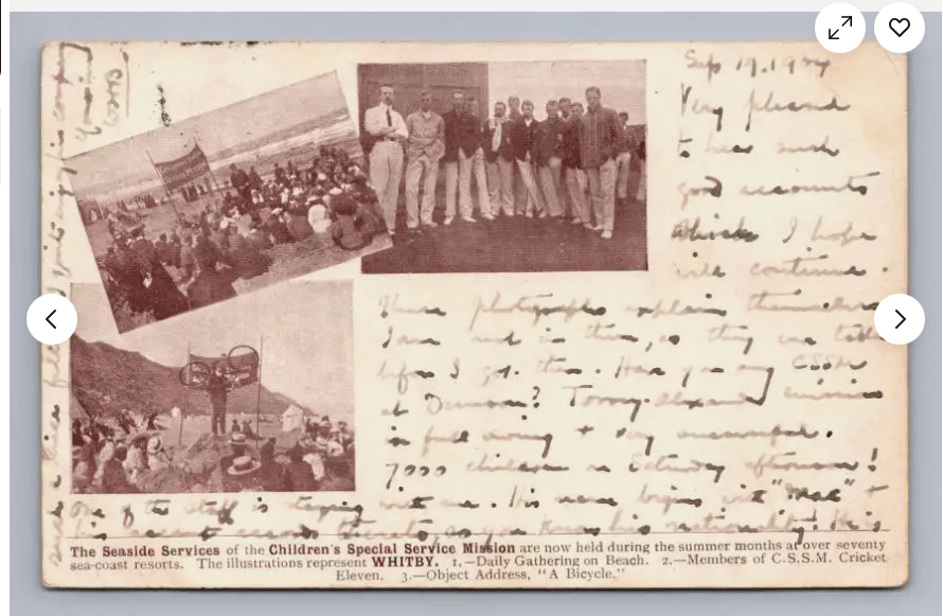 Sep 19. 1904
Very pleased
to hear such
good accounts
which I hope
will continue.
These photographs explain themselves
I am not in them, as they were
before I got there. Have you any CSSM
at Dunoon? Torrey-Alexander mission
in full swing & very successful.
7000 children on Saturday afternoon!
One of the staff is staying with me. His name begins with "Mac" &
his accent as you know his nationality! He is
The Seaside Services of the Children's Special Service Mission are now held during the summer months at over seventy
sea-coast resorts. The illustrations represent WHITBY. 1.—Daily Gathering on Beach. 2.—Members of C.S.S.M. Cricket
Eleven. 3.—Object Address, "A Bicycle."